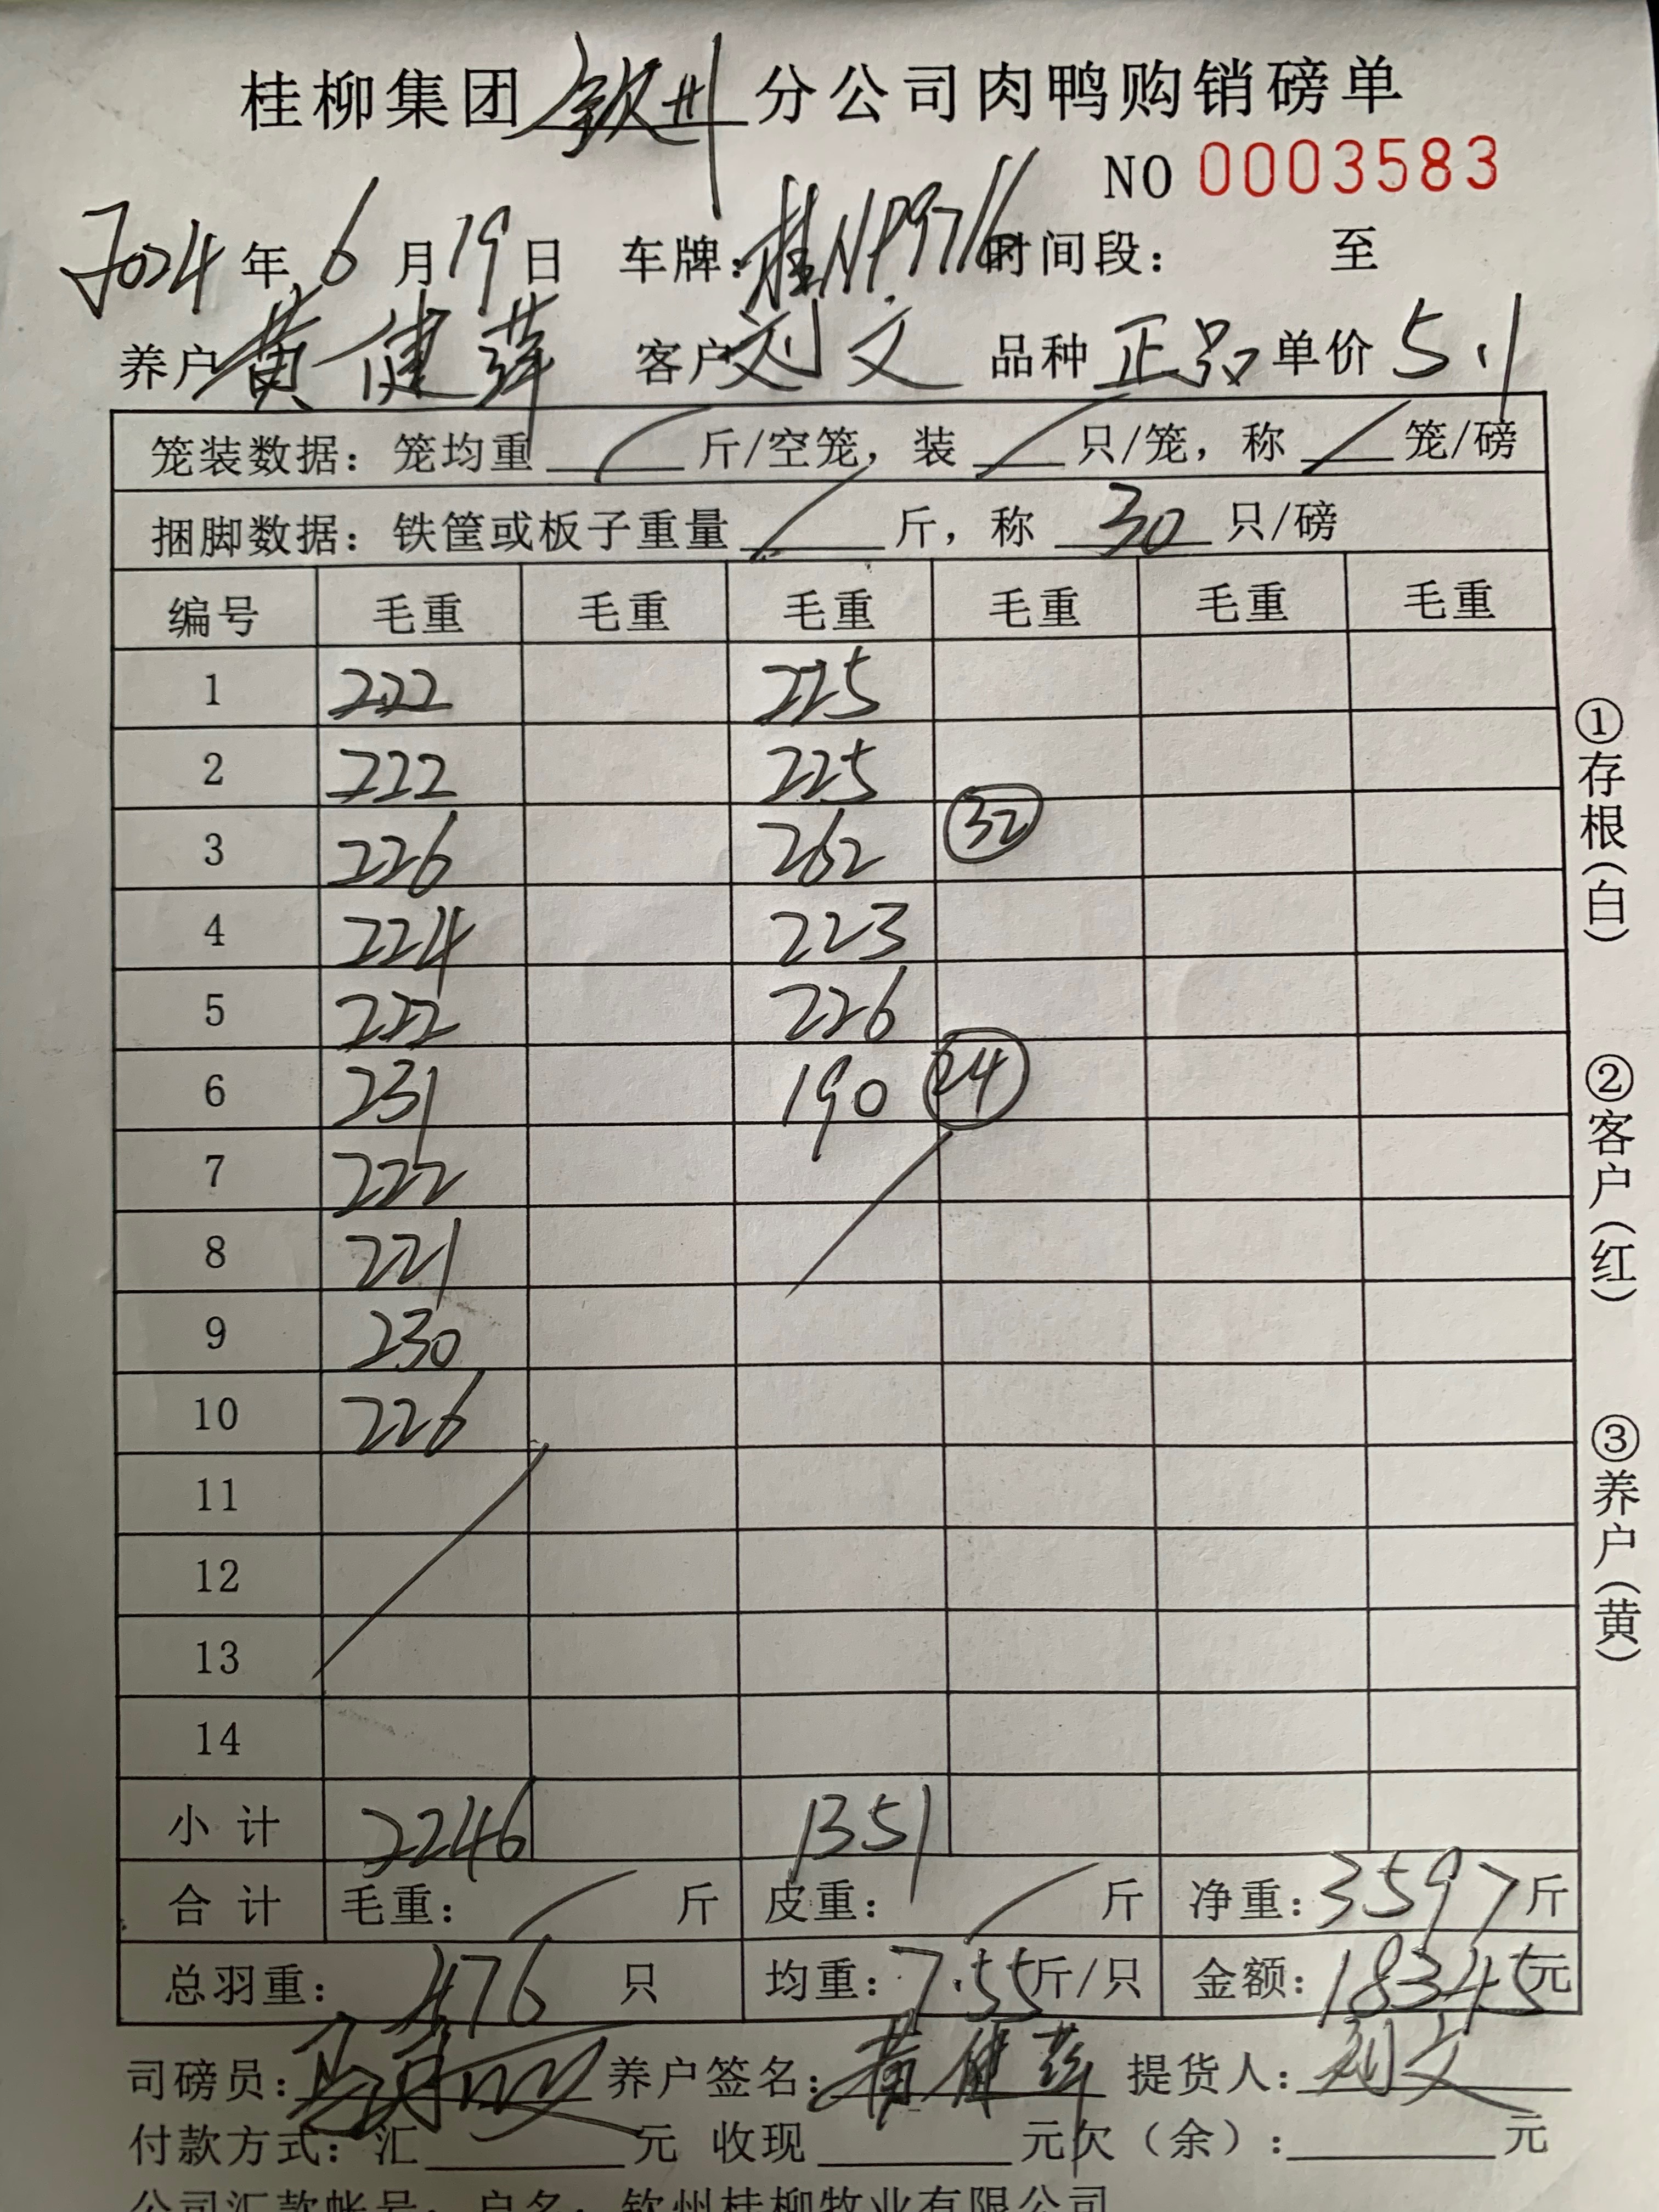 桂柳集团 钦州 分公司肉鸭购销磅单
NO 0003583
2024 年 6 月 19 日 车牌：桂NP9716 时间段： 至
养户 黄健萍 客户 刘文 品种 正品 单价 5.1
笼装数据：笼均重 / 斤/空笼，装 / 只/笼，称 / 笼/磅
捆脚数据：铁筐或板子重量 / 斤，称 30 只/磅
编号 毛重 毛重 毛重 毛重 毛重 毛重
1 222 225
2 222 225
3 226 262 32
4 224 223
5 222 226
6 231 190 24
7 222
8 221
9 230
10 226
11
12
13
14
小计 2246 1351
合计 毛重： / 斤 皮重： / 斤 净重：3597 斤
总羽重： 476 只 均重：7.55 斤/只 金额：18345 元
司磅员： 养户签名：黄健萍 提货人：刘文
付款方式：汇 元 收现 元 欠（余）： 元
公司汇款帐号：户名：钦州桂柳牧业有限公司
①存根（白）
②客户（红）
③养户（黄）